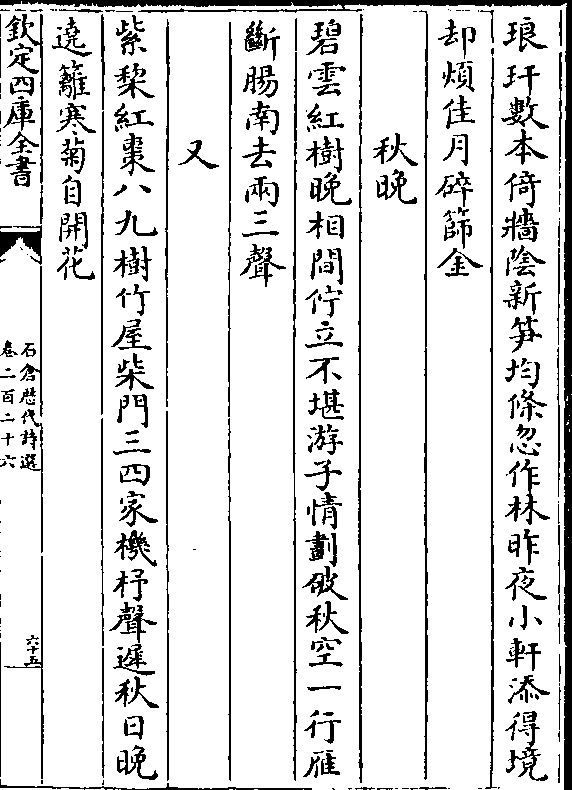 琅玕數本倚牆陰新笋均條忽作林昨夜小軒添得境
却煩佳月碎篩金
秋晚
碧雲紅樹晚相間佇立不堪游子情劃破秋空一行雁
斷腸南去兩三聲
又
紫棃紅棗八九樹竹屋柴門三四家機杼聲遲秋日晚
遶籬寒菊自開花
欽定四庫全書
石倉歴代詩選
卷二百二十六
六十五